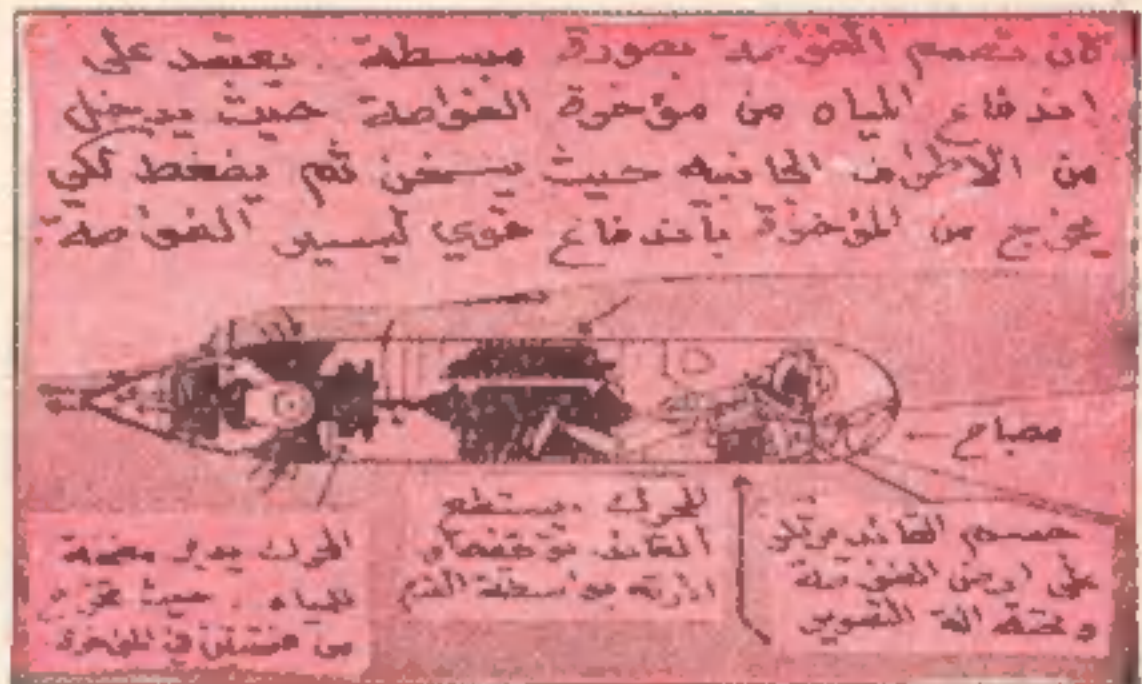 كان تصميم الغواصة بصورة مبسطة . يعتمد على
اندفاع المياه من مؤخرة الغواصة حيث يدخل
من الأطراف الجانبيه حيث يسخن ثم يضغط لكي
يخرج من المؤخرة باندفاع قوي ليسير الغواصة
مصباح
جسم القائد يرتكز
على ارض الغواصة
وتحته الة التصوير
المحرك يستطيع
القائد توقيفه او
ادارته بواسطة القدم
المحرك يدير مضخة
المياه . حيث تخرج
من فتحتان في المؤخرة